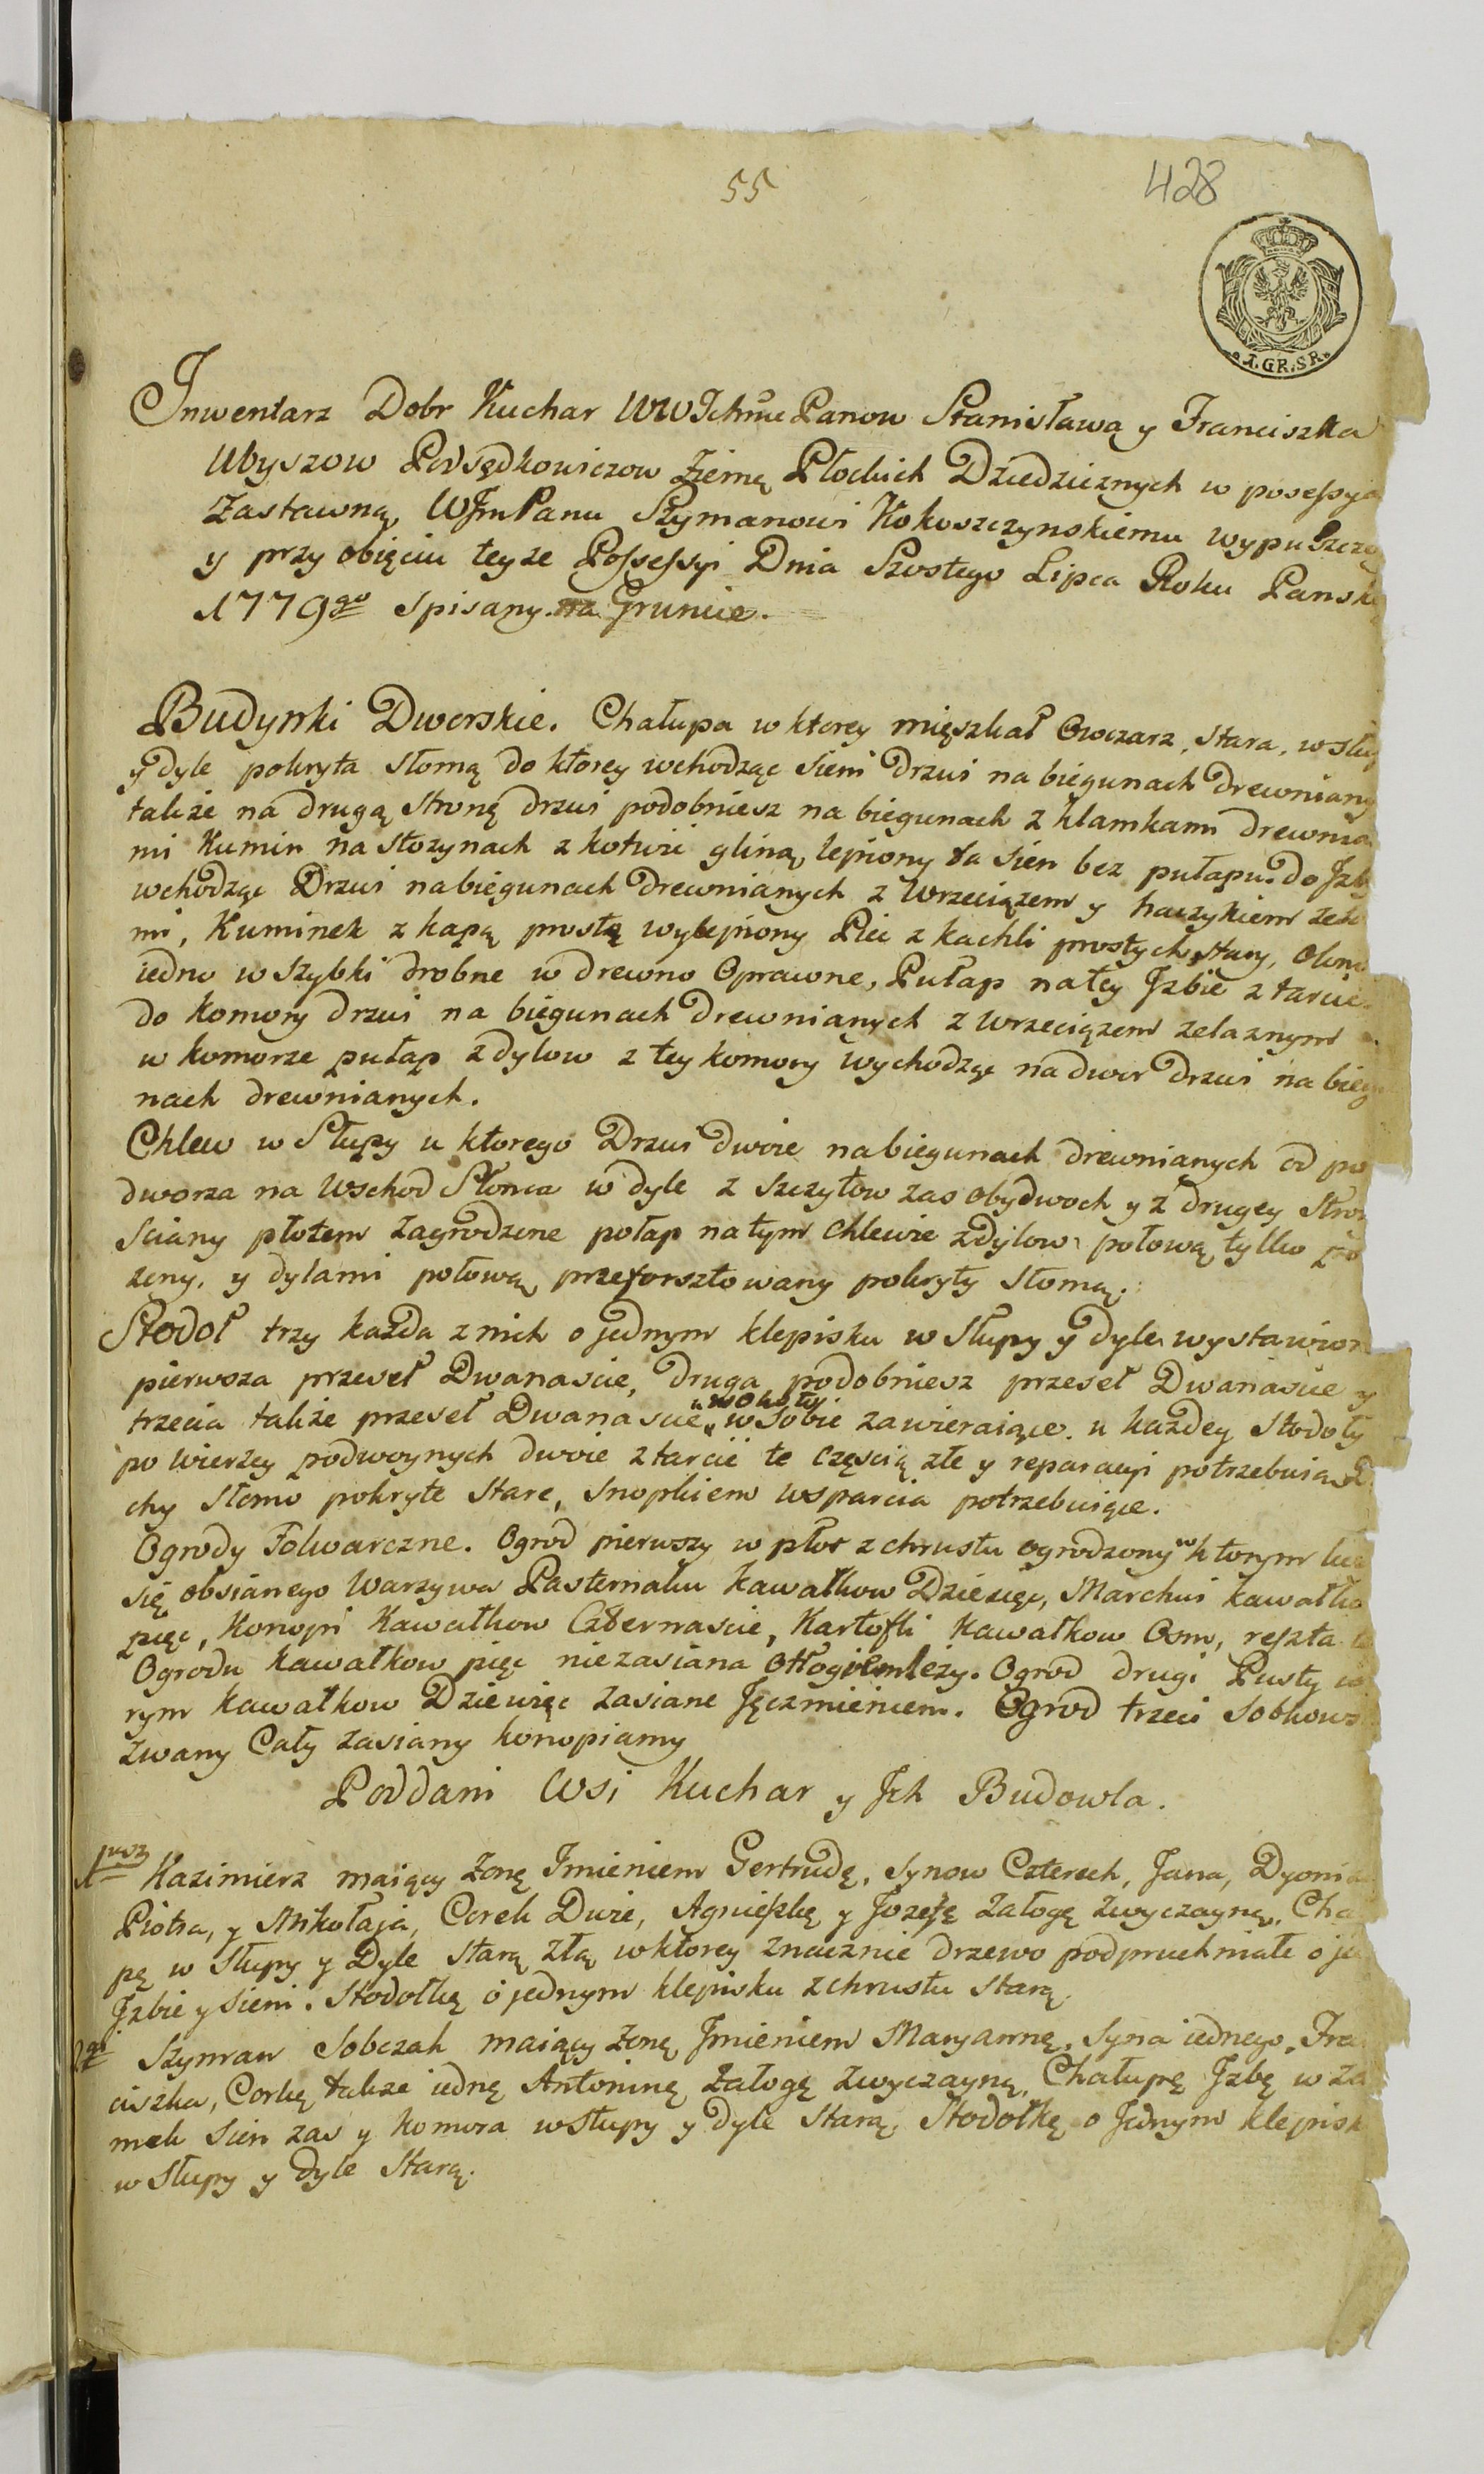 55
428
4.GR.SR.
Inwentarz Dobr Kuchar WWJchmc Panow Stanisława y Franciszka
Ubyszow Podsędkowiczow Ziemę Płockich Dziedzicznych w posessyą
Zastawną WJmPanu Szymanowi Kokoszczynskiemu wypuszczo
y przy obięciu teyze Possessyi Dnia Szostego Lipca Roku Pansk
1779go Spisany na Gruncie.
Budynki Dworskie. Chałupa w ktorey mięszkał Owczarz, stara, w słup
y dyle pokryta słomą do ktorey wchodząc sieni Drzwi na biegunach Drewniany
takze na drugą stronę drzwi podobniesz na biegunach z klamkami drewnia
mi Kumin na stozynach z kotwi gliną lepiony ta sien bez pułapu. do Jzby
wchodząc Drzwi na biegunach Drewnianych z Wrzeciązem y haczykiem zela
mi, Kuminek z kapą prostą wylepiony Piec z kachli prostych stary, Okno
iedno w szybki drobne w drewno Oprawne, Pułap na tey Jzbie z tarcic
do komory drzwi na biegunach Drewnianych z Wrzeciązem zelaznym
w komorze pułap z dylow z tey komory wychodząc na dwor drzwi na bieg
nach drewnianych.
Chlew w Słupy u ktorego Drzwi dwoie na biegunach drewnianych od po
dworza na Wschod Słonca w dyle z szczytow zas obydwoch y z drugey stron
sciany płotem zagrodzone połap na tym chlewie z dylow połową tylko
zony, y dylami połową przeforsztowany pokryty słomą.
Stodoł trzy każda z nich o jednym klepisku w słupy y dyle wystawion
pierwsza przeseł Dwanascie, druga podobniesz przeseł Dwanascie y
trzecia takze przeseł Dwanascie w sobie zawieraiące. u każdey stodoły
po wierzey podwoynych dwoie z tarcic te częscią złe y reparacyi potrzebuią
chy słomo pokryte stare, snopkiem wsparcia potrzebuiące.
Ogrody Folwarczne. Ogrod pierwszy w płot z chrustu ogrodzony w ktorym
się obsianego Warzywa Pasternaku kawałkow Dziesięc, Marchwi kawałko
pięc, Konopi Kawałkow Czternascie, Kartofli Kawałkow Osm, reszta
Ogrodu kawałkow pięc niezasiana Ottogiem lezy. Ogrod drugi Pusty
rym kawałkow Dziewięc zasiane Jęczmieniem. Ogrod trzeci Sobkows
zwany Cały zasiany konopiamy
Poddani Wsi Kuchar y Jch Budowla.
1wszy Kazimierz maiący zonę Jmieniem Gertrudę, synow Czterech, Jana, Dyoni
Piotra, y Mikołaja, Corek Dwie, Agnieszkę y Jozefę Załogę Zwyczayną, Cha
pę w słupy y Dyle starą złą w ktorey znacznie drzewo podpruchniałe o je
Jzbie y sieni. Stodołkę o jednym klepisku z chrustu starą.
2gi Szyman Sobczak maiący zonę Jmieniem Maryannę, Syna iednego, Fra
ciszka, Corkę takze iedną Antoninę, Załogę zwyczayną, Chałupę Jzbę w za
mek sien zas y komora w słupy y dyle starą, Stodołkę o Jednym klepisk
w słupy y dyle starą.